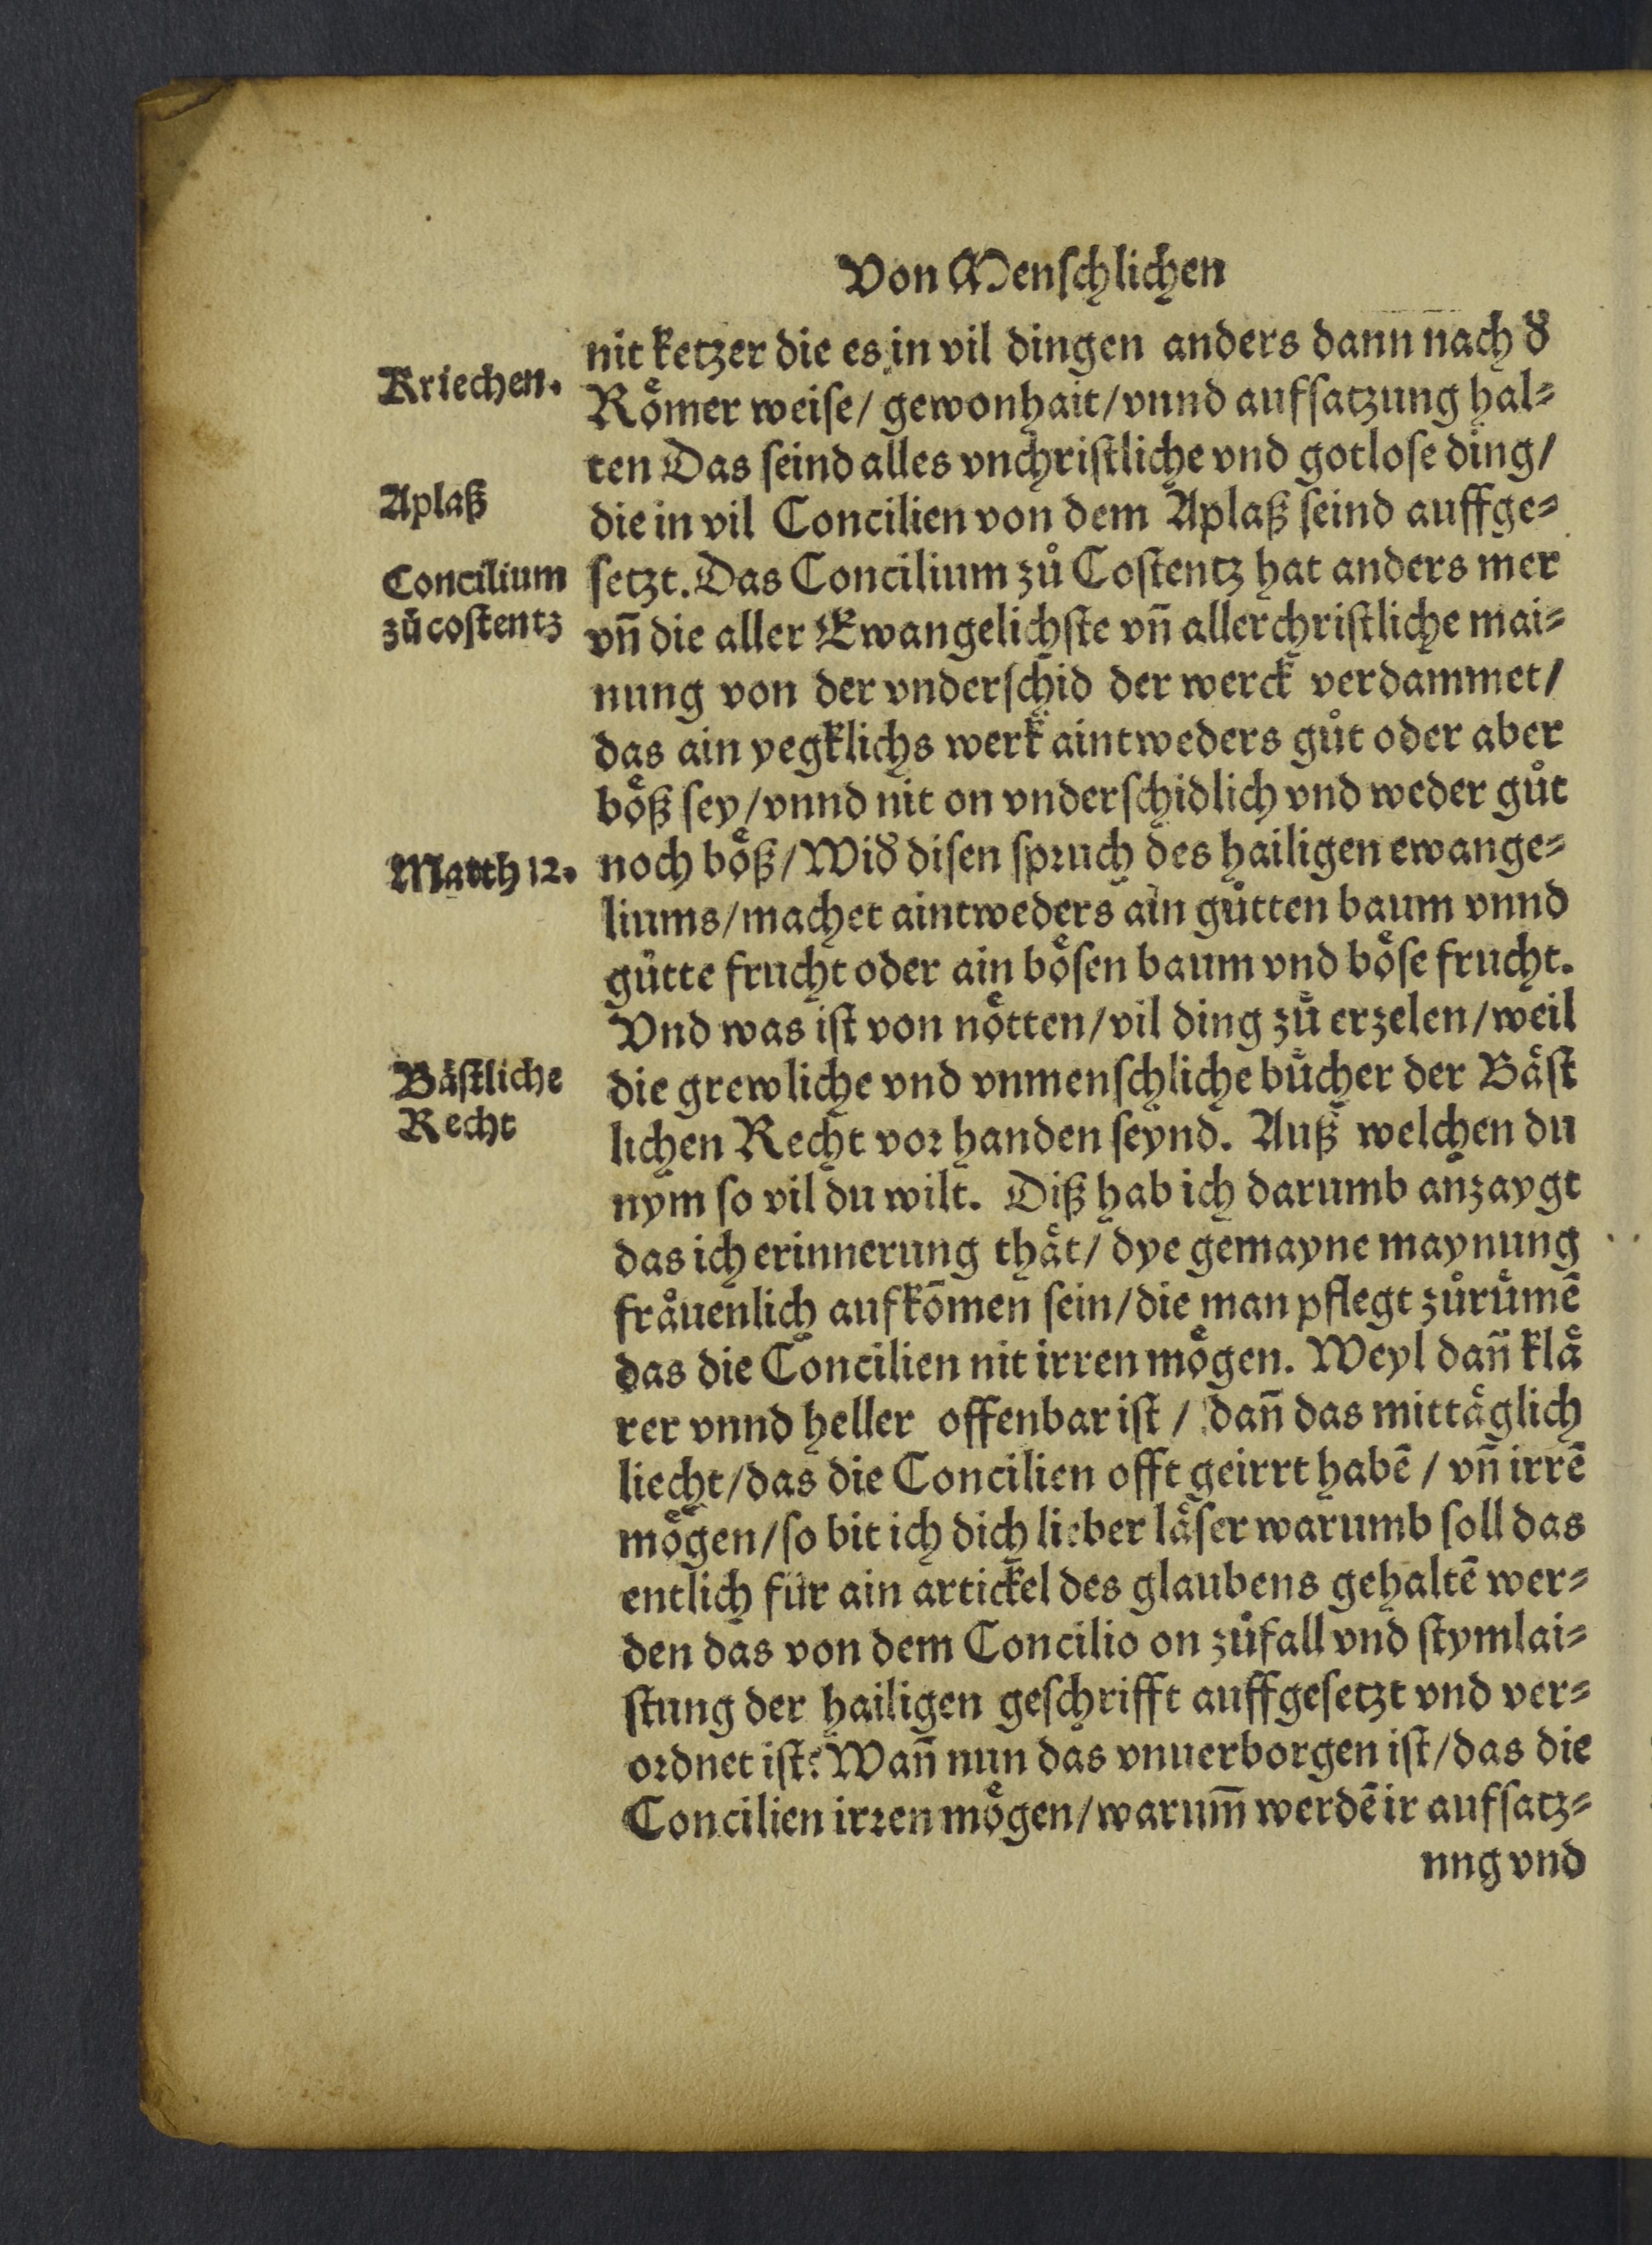 Von Menſchlichen
nit ketzer die es in vil dingen anders dann nach d̕
Kriechen.
Roͤmer weiſe / gewonhait / vnnd aufſatzung hal⸗
ten Das ſeind alles vnchriſtliche vnd gotloſe ding /
Aplaß
die in vil Concilien von dem Aplaß ſeind auffge⸗
Concilium
ſetzt. Das Concilium zuͦ Coſtentz hat anders mer
zuͦ coſtentz
vn̄ die aller Ewangelichſte vn̄ allerchriſtliche mai⸗
nung von der vnderſchid der werck verdammet /
das ain yegklichs werk aintweders guͦt oder aber
boͤß ſey / vnnd nit on vnderſchidlich vnd weder guͦt
Matth 12.
noch boͤß / Wid̕ diſen ſpꝛuch des hailigen ewange⸗
liums / machet aintweders ain guͦtten baum vnnd
guͦtte frucht oder ain boͤſen baum vnd boͤſe frucht.
Vnd was iſt von noͤtten / vil ding zuͦ erzelen / weil
Baͤſtliche
die grewliche vnd vnmenſchliche buͤcher der Baͤſt
Recht
lichen Recht voꝛ handen ſeynd. Auß welchen du
nym ſo vil du wilt. Diß hab ich darumb anzaygt
das ich erinnerung thaͤt / dye gemayne maynung
fraͤuenlich aufkōmen ſein / die man pflegt zuͦruͤmē
das die Concilien nit irren moͤgen. Weyl dañ klaͤ
rer vnnd heller offenbar iſt / dañ das mittaͤglich
liecht / das die Concilien offt geirrt habē / vn̄ irrē
moͤgen / ſo bit ich dich lieber laͤſer warumb ſoll das
entlich fuͤr ain artickel des glaubens gehaltē wer⸗
den das von dem Concilio on zuͦfall vnd ſtymlai⸗
ſtung der hailigen geſchrifft auffgeſetzt vnd ver⸗
oꝛdnet iſt? Wañ nun das vnuerborgen iſt / das die
Concilien irꝛen moͤgen / warum̄ werdē ir aufſatz⸗
nng vnd